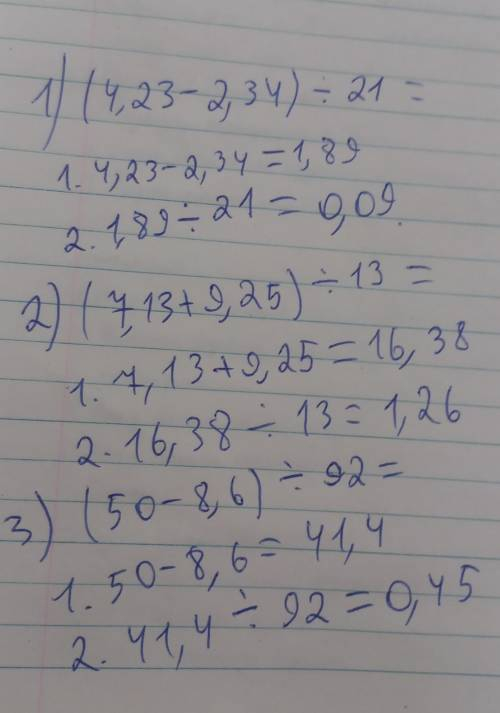 1) (4,23-2,34) ÷ 21 =
1. 4,23-2,34 = 1,89
2. 1,89 ÷ 21 = 0,09.
2) (7,13+9,25) ÷ 13 =
1. 7,13+9,25 = 16,38
2. 16,38 ÷ 13 = 1,26
3) (50-8,6) ÷ 92 =
1. 50-8,6 = 41,4
2. 41,4 ÷ 92 = 0,45